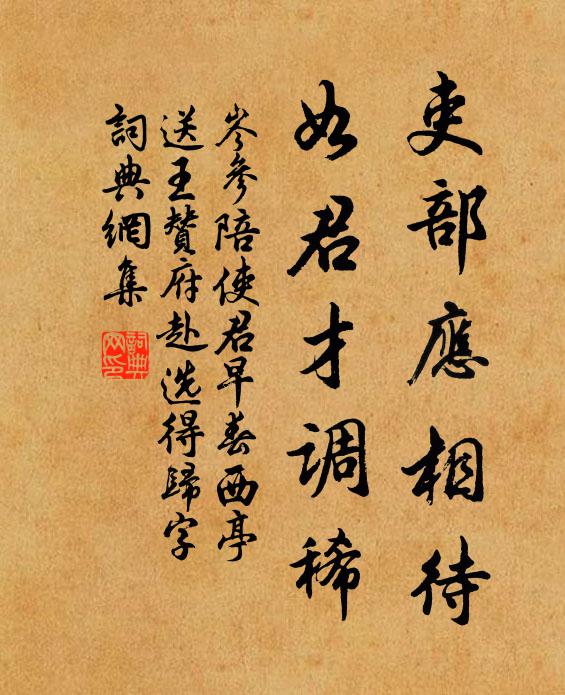 吏部應相待
如君才調稀
岑參陪使君早春西亭
送王贊府赴选得歸字
詞典網集
詞典
网印